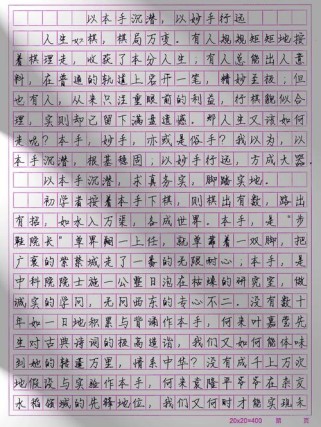 以本手沉潜，以妙手行远
人生如棋，棋局万变。有人规规矩矩地按
着棋理走，收获了本分人生；有人总能出人意
料，在普通的轨道上另开一笔，精妙至极；但
也有人，从来只注重眼前的利益，行棋貌似合
理，实则却已留下满盘遗憾。那人生又该如何
走呢？本手，妙手，亦或是俗手？我以为，以
本手沉潜，根基稳固；以妙手行远，方成大器。
以本手沉潜，求真务实，脚踏实地。
初学者按着本手下棋，则棋出有数，路出
有招，如水入万渠，各成世界。本手，是“步
鞋院长”单霁翔一上任，就单靠着一双脚，把
广袤的紫禁城走了一番的无限耐心；本手，是
中科院院士施一公整日泡在枯燥的研究室，做
诚实的学问，无问西东的专心不二。没有数十
年如一日地积累与背诵作本手，何来叶嘉莹先
生对古典诗词的极高造诣，我们又如何能体味
到她的转蓬万里，情系中华？没有成千上万次
地假设与实验作本手，何来袁隆平爷爷在杂交
水稻领域的先锋地位，我们又何时才能实现禾
20x20=400 第 页